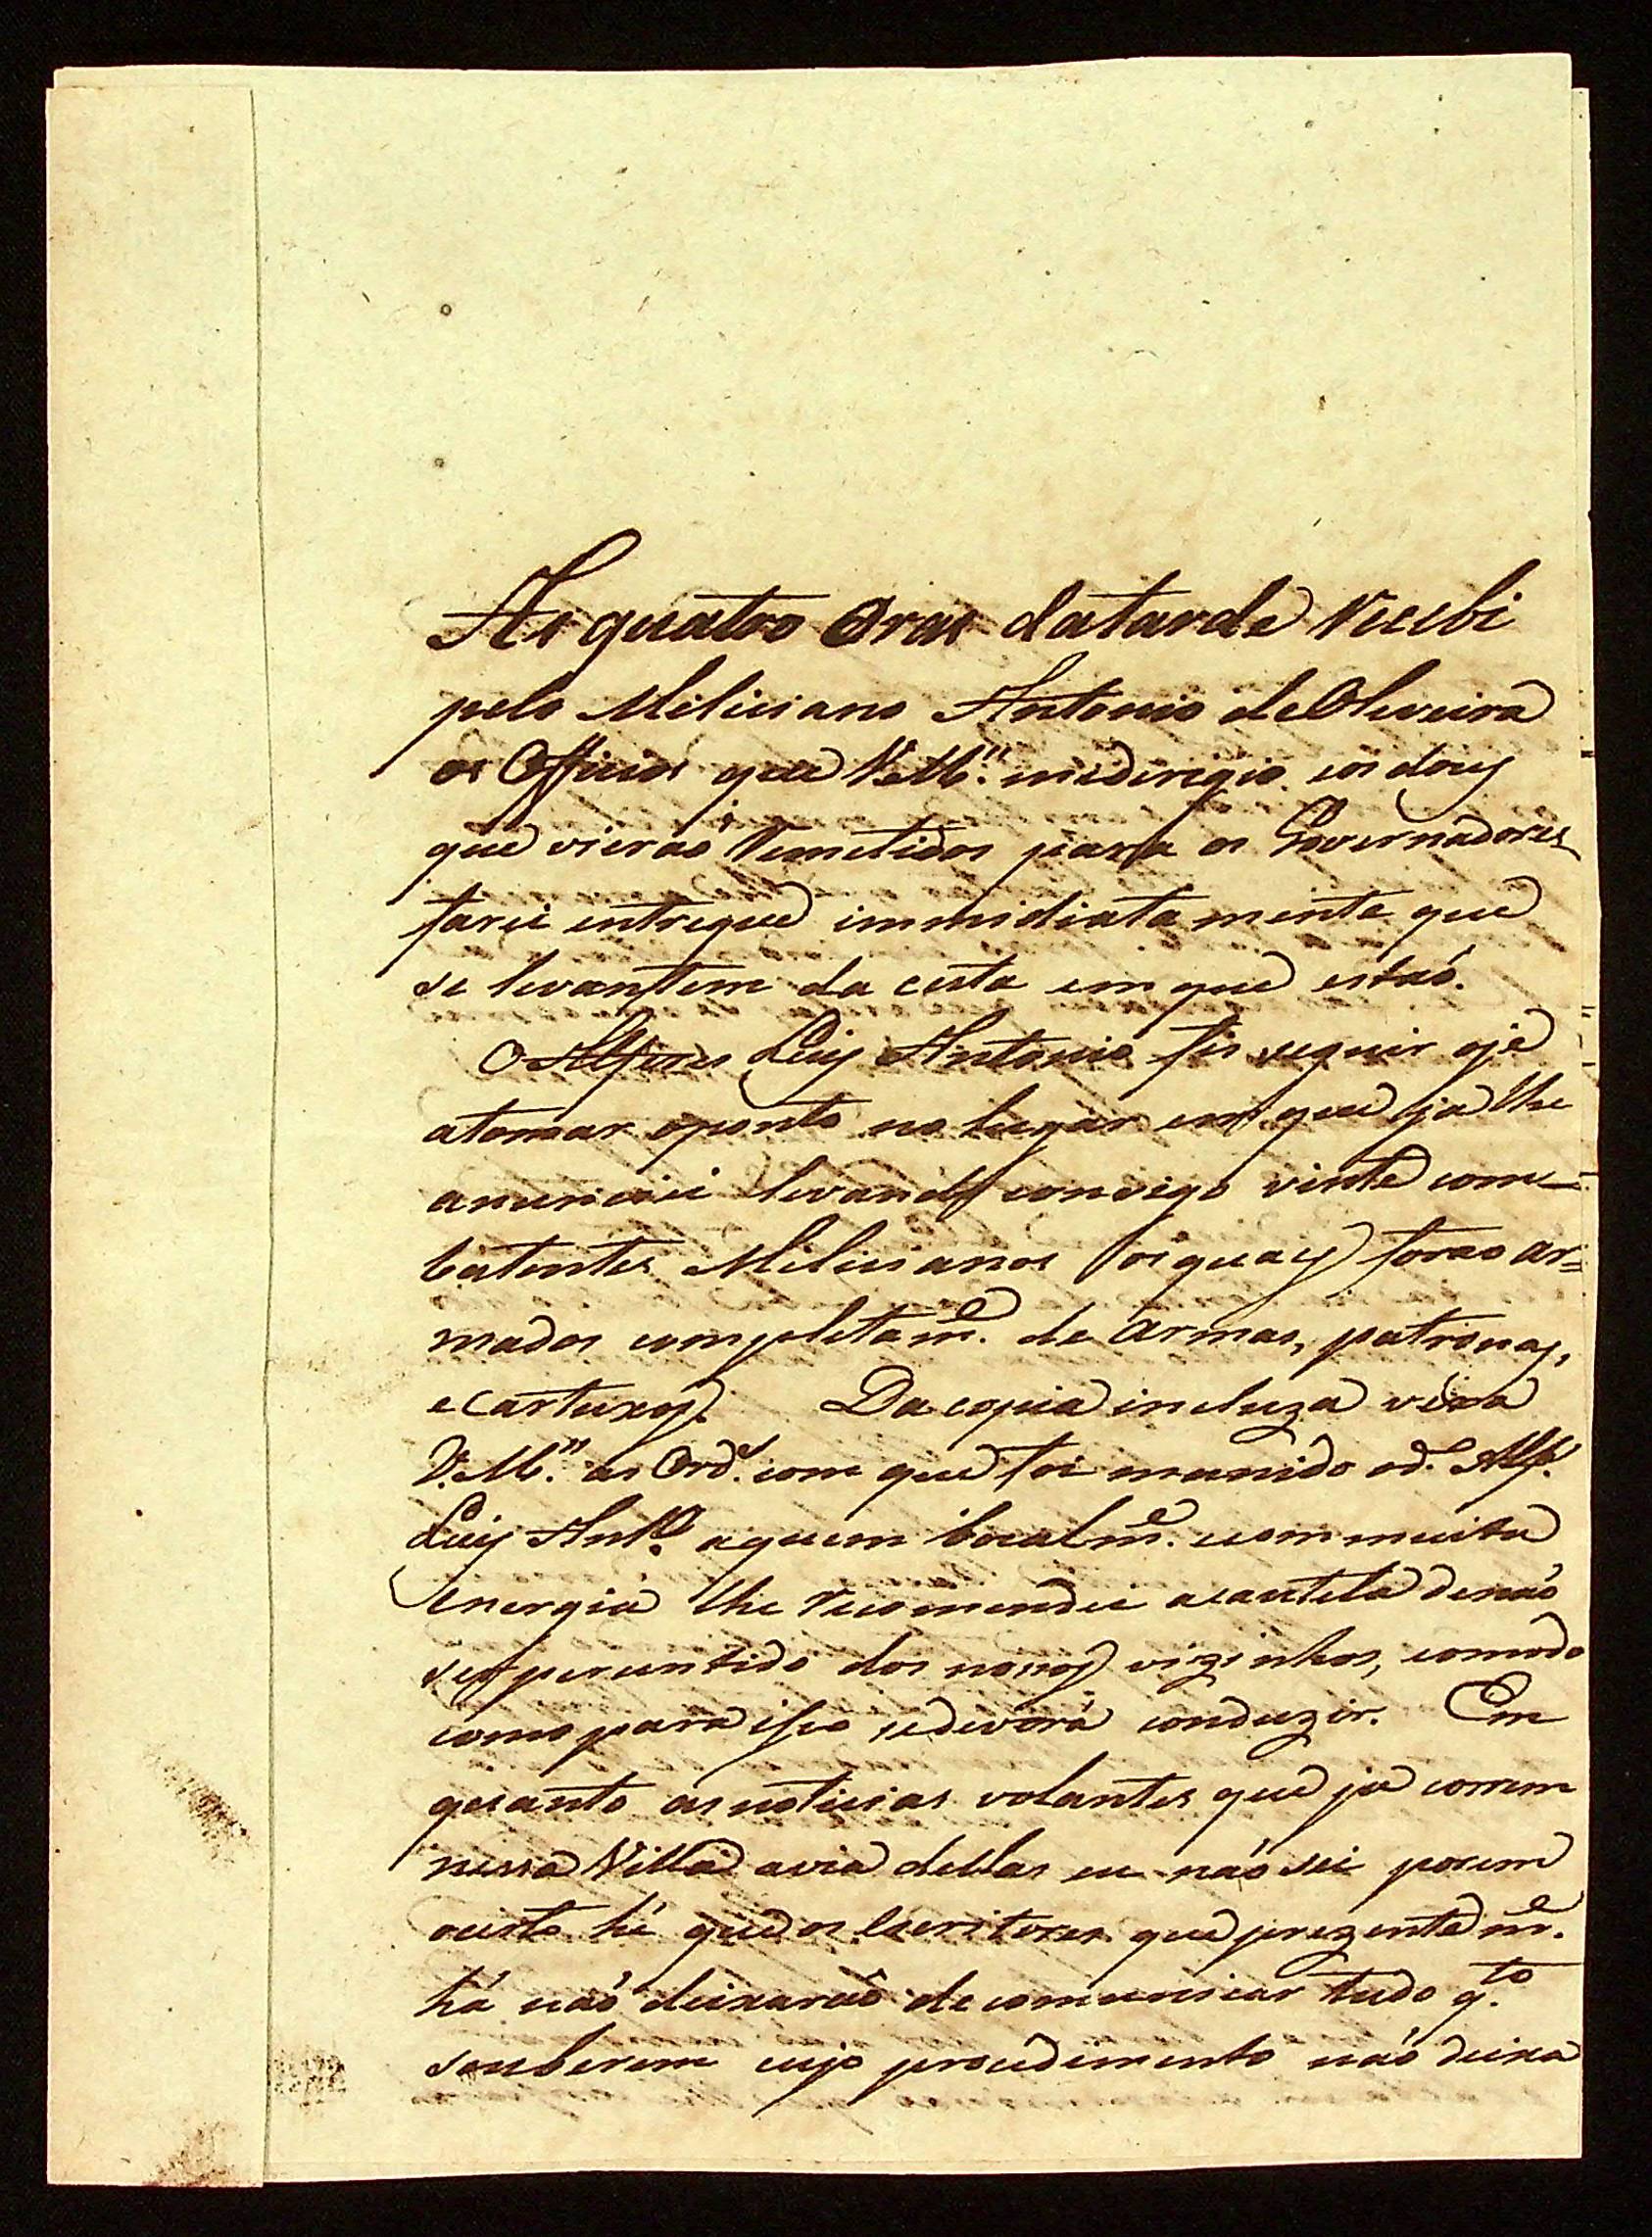 As quatro Oras datarde Recebi
pelo Miliciano Antonio deOliveira
os Officios que VM.ces medirigio eos dois
que vierão Remetidos para os Governadores
farei entregue immidiatamente que
se levantem da cesta emque estão.
OAlferes Luis Antonio fis seguir oje
atomar oponto no lugar emque ja lhe
anunciei levando consigo vinte com-
batentes Milicianos (os quais) forão ar=
mados completam.e de armas, patronas,
eCartuxos. Dacopia incluza verá
V.M.ce as Ord.s com que foi munido od.o Alf.s
Luis Ant.o aquem bocalm.e ecommuita
energia lhe recomendei acautela denão
ser percentido dos nossos vizinhos, emodo
como para isso sedeverá conduzir. Em
quanto as noticias volantes que ja correm
nessa Villa avia dellas eu não sei porem
certo hé que os Escritores que prezentem.e
há não deixarão de comunicar tudo q.to
souberem cujo procedimento não deixa